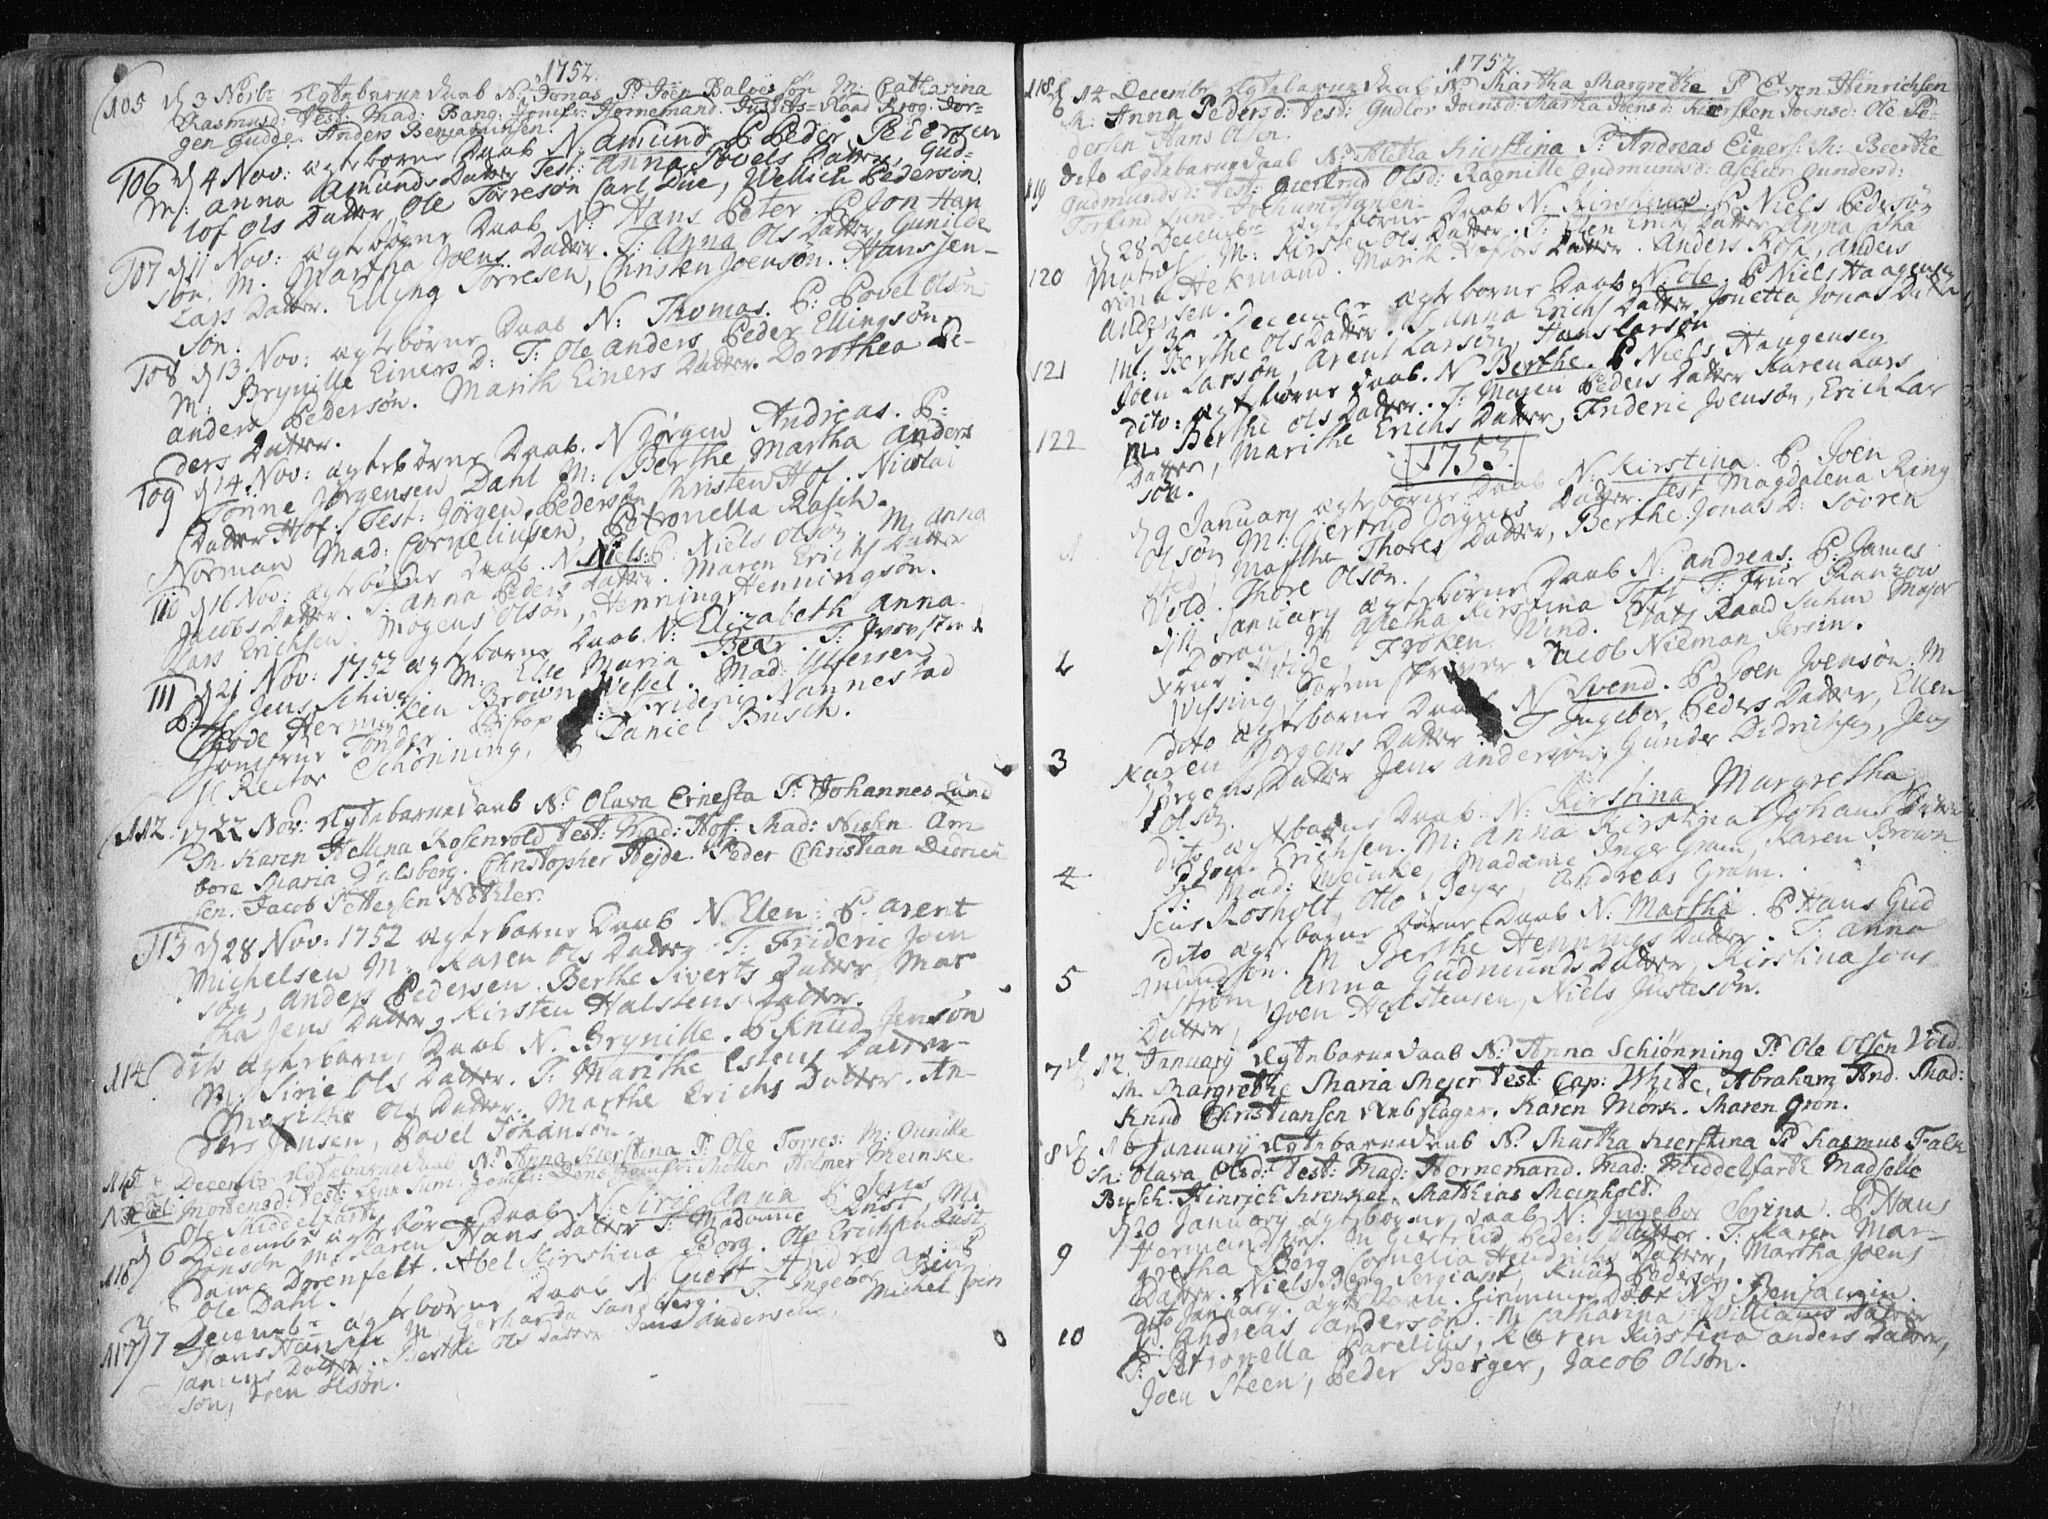 1752.
105 d 3 Novbr ægtebarne daab N: Jonas P: Joen Baloes søn M: Catharina
Rasmusd: Test: Mad: Bang. Jomfr: Hornemand. Justits-Raad Krog. Jør=
gen Gudde. Anders Benjaminsen.
106 d 4 Nov: ægtebørne Daab N: Amund P Peder Pedersen
M: Anna Amunds Datter Test: Anna Povels Datter, Gud=
lof Ols Datter Ole Torresøn Carl Due, Wellich Pedersøn.
107 d 11 Nov: ægtebørne Daab N: Hans Peter. P Jon Han
søn. M. Martha Joens Datter. T: Anna Ols Datter, Gunilde
Lars Datter. Elling Torresen, Christen Joensøn. Hans Jen=
søn.
108 d 13 Nov: ægtebørne Daab N: Thomas. P: Povel Olsøn
M: Brynille Einers D: T: Ole Anders Peder Ellingsøn,
Anders Pedersøn. Marith Einers Datter. Dorothea Pe=
ders Datter.
109 d 14 Nov: ægtebørne Daab. N Jørgen Andreas. P:
Tønne Jørgensen Dahl M: Berthe Martha Anders
Datter Hof. Test: Jørgen Pedersøn Christen Hof. Nicolai
Norman Mad: Corneliussen, Petronella Rasch.
110 d 16 Nov: ægtebørne Daab. N Niels. P: Niels Olsøn, M: Anna
Jacobs Datter. T: Anna Peders Datter. Maren Erichs Datter
Lars Erichsen. Mogens Olsøn, Henning Henningsøn.
111 d 21 Nov: 1752 ægtebørne Daab N: Elizabeth Anna.
P: Hr Jens Schive M: Else Maria Bear. T: Provstinde
Thode Herm ken Brown Wessel. Mad: Ussersen,
Jomfrue Tønder. Bistop Frideric Nannestad
H Rector Schønning, Daniel Busch.
112. d 22 Nov: Ægtebarnedaab N: Olava Ernesta P: Johannes Lund
M. Karen Hellena Rosenvold Test: Mad: Hof. Mad: Nissen Am
bore Maria Dulsberg. Christopher Hejde. Peder Christian Didrich
sen. Jacob Pettersen Nøtzler.
113 d 28 Nov: 1752 ægtebørne Daab N. Elen. P. Arent
Michelsen M: Karen Ols Datter. T: Frideric Joen
søn, Anders Pedersen. Berthe Siverts Datter Mar
tha Jens Datter, Kirsten Halstens Datter.
114 dito ægtebørne Daab N. Brynille. P Knud Jensøn
M: Sine Ols Datter. T: Marithe Estens Datter
Marithe Ols Datter. Marthe Erichs Datter. An=
ders Jensen, Povel Johansøn.
115 December Ægtebarnedaab N: Anna Kierstina P: Ole Torres: M: Gunille
Mortensd: Test: Frue Sum: Jomfr: Møller Helmer Meinke
Ole Middelfart
116 d 6 December ægtebørne Daab N: Sirie Anna P Jens
Jonsøn M: Karen Hans Datter T: Madame Ma=
dame Dorenfelt. Abel Kirstina Borg. Ole Erichsen Rust
Ole Dahl.
117 d 7 Decemb: ægtebørne Daab N Giert Andreas. P
Hans Hansen M: Gerharda Sandberg. T: Ingebor Ben
jamins Datter. Berthe Ols Datter Jens Andersen, Michel Joen
søn, Joen Olsøn.
1752
118 d 14 Decembr Ægtebarne daab N: Martha Margrethe P: Even Hinrichsen
M: Anna Pedersd: Test: Gudlov Joensd: Martha Joensd: Kiersten Joensd: Ole Pe=
dersen Hans Olsen.
119 dito Ægtebarne daab N: Aletha Kierstina P: Andreas Einers: M: Beerthe
Gudmundsd: Test: Giertrud Olsd: Ragnille Gudmundsd: Ascher Gundersd:
Torkind Lund. Jochum Hansen.
120 d 28 Decembr ægtebørne Daab N: Kirstina. P Niels Pedersøn
Matros M: Kirsten Ols Datter. T: Elen Erichs Datter Anna Catha
rina Hekmand. Marith Datter. Anders Rofs, Anders
Andersen.
121 d 30 December ægtebørne Daab N: Ole. P Niels Haagensen
M: Berthe Ols Datter. T: Anna Erichs Datter, Jonetta Jonas Datter
Joen Larsøn, Arent Larsøn, Hans Larsøn
122 dito: ægtebørne daab. N Berthe. P Niels Haagensen
M. Berthe Ols Datter. T: Magen Peders Datter Karen Lars
Datter, Marithe Erichs Datter, Frideric Joensøn, Erich Lar
søn.
1753.
1 d 9 January ægtebørne Daab N: Kirstina. P: Joen
Olsøn M: Giertrud Jørgens Datter. Test Magdalena Ring
sted, Marthe Thores Datter, Berthe Jonas D: Søoren
Vold. Thore Olsøn.
2 d 11 January ægtebørne Daab N: Andreas. P: James
Doran, M Aletha Kirstina Toft T: Frue Ranzow
Frue Hvide, Frøken Wind. Etats Raad Suhm Major
Wissing, Soren skriver Jacob Nieman Jersin.
3 dito ægtebørne Daab N Svend. P. Joen Joensøn. M
Karen Jørgens Datter T Ingebor Peders Datter, Ellen
Jørgens Datter Jens Andersøn, Gunder Didrichsen, Jens
Olsøn.
4 dito ægtebørne Daab. N: Kirstina Margretha
P Joen Erichsen. M: Anna Kirstina Johans Datter
T: Mad: Meinke, Madame Inger Gram, Karen Brown
Jens Rosholt, Otto Beyer, Andreas Gram.
5 dito ægtebørne Daab N: Martha. P Hans Gud
mundsøn. M Berthe Hennings Datter. T: Anna
strøm, Anna Gudmunds Datter, Kirstina Jons
Datter, Joen Halstensen, Niels Justesøn.
7 d 12. January Ægtebarnedaab N: Anna Schiønning P: Ole Olsen Vold.
M. Margrethe Maria Mejer Test: Cap: White, Abraham And. Mad:
Knud Christiansen Rebslager. Karen Mørk. Maren Grøn.
8 d 16 January Ægtebarnedaab N: Martha Kierstina P: Rasmus Falk
M: Olava Olsd: Test: Mad: Hornemand. Mad: Middelfarth Madselle
Busch. Hinrich Krenkel. Matthias Meinholt.
9 d 20 January ægtebørne daab N: Ingebor Serina. P Hans
Hermandsen. M Giertrud Peders Datter. T: Karen Mar=
gretha Berg, Cornelia Hendrichs Datter, Martha Joens
Datter. Niels Berg Sergiant, Knud Pedersøn.
10 dito January. ægtebørn. Daab N: Benjamin.
P. Andreas Andersøn. M Catharina Williams Datter
T: Petronella Parelius, Karen Kirstina Anders Datter,
Joen Steen, Peder Berger, Jacob Olsøn.